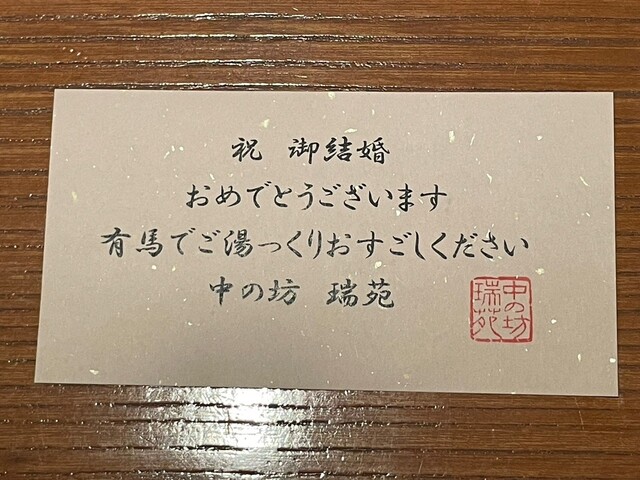 祝 御結婚
おめでとうございます
有馬でご湯っくりおすごしください
中の坊 瑞苑
中の坊
瑞苑